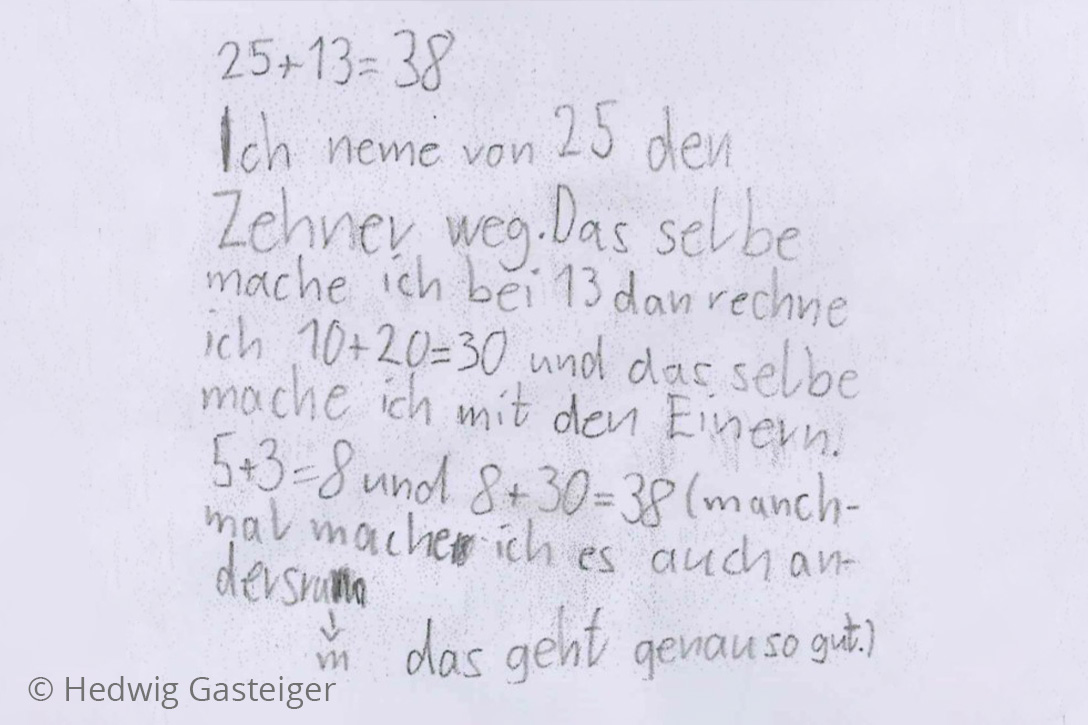 25+13=38
Ich neme von 25 den
Zehner weg. Das selbe
mache ich bei 13 dan rechne
ich 10+20=30 und das selbe
mache ich mit den Einern.
5+3=8 und 8+30=38 (manch-
mal mache ich es auch an-
dersrum
↓
m das geht genauso gut.)
© Hedwig Gasteiger